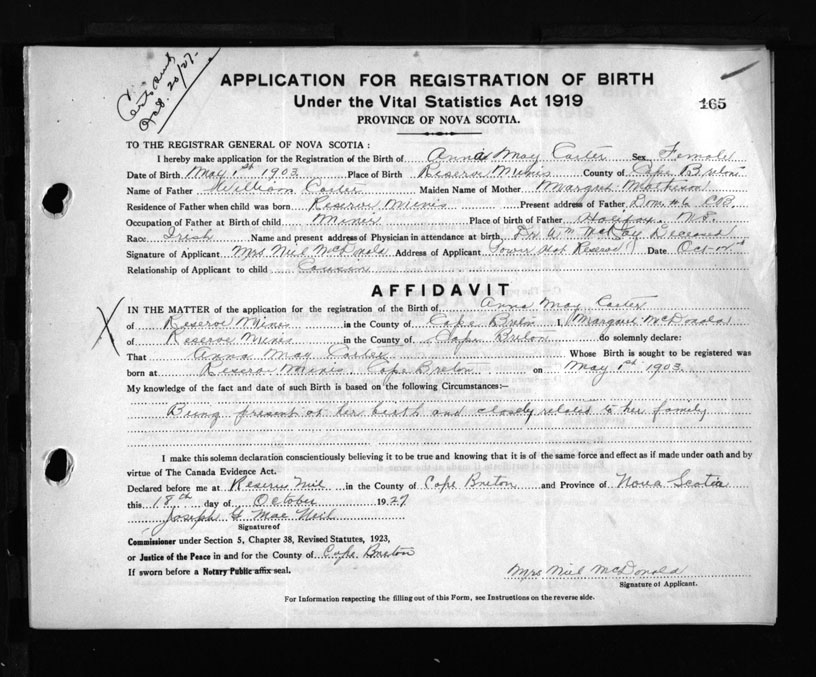 Oct. 20/27.
APPLICATION FOR REGISTRATION OF BIRTH
Under the Vital Statistics Act 1919
165
PROVINCE OF NOVA SCOTIA.
TO THE REGISTRAR GENERAL OF NOVA SCOTIA :
I hereby make application for the Registration of the Birth of Anna May Carter Sex Female
Date of Birth May 1st 1903 Place of Birth Reserve Mines County of Cape Breton
Name of Father William Carter Maiden Name of Mother Margret Matheson
Residence of Father when child was born Reserve Mines Present address of Father Dom #6 C.B.
Occupation of Father at Birth of child Miner Place of birth of Father Halifax, N.S.
Race Irish Name and present address of Physician in attendance at birth Dr Wm McKay Deceased
Signature of Applicant Mrs Niel McDonald Address of Applicant Reserve Date Oct
Relationship of Applicant to child Cousen
AFFIDAVIT
IN THE MATTER of the application for the registration of the Birth of Anna May Carter
of Reserve Mines in the County of Cape Breton I, Margaret McDonald
of Reserve Mines in the County of Cape Breton do solemnly declare:
That Anna May Carter Whose Birth is sought to be registered was
born at Reserve Mines Cape Breton on May 1st 1903
My knowledge of the fact and date of such Birth is based on the following Circumstances:—
Being present at her birth and closely related to her family
I make this solemn declaration conscientiously believing it to be true and knowing that it is of the same force and effect as if made under oath and by
virtue of The Canada Evidence Act.
Declared before me at Reserve Mines in the County of Cape Breton and Province of Nova Scotia
this 18th day of October 1927
Joseph G Mac Neil
Signature of
Commissioner under Section 5, Chapter 38, Revised Statutes, 1923,
or Justice of the Peace in and for the County of Cape Breton
If sworn before a Notary Public affix seal.
Mrs Niel McDonald
Signature of Applicant.
For Information respecting the filling out of this Form, see Instructions on the reverse side.